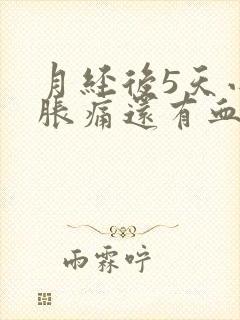 月经後5天
脹痛還有血
雨霖咛